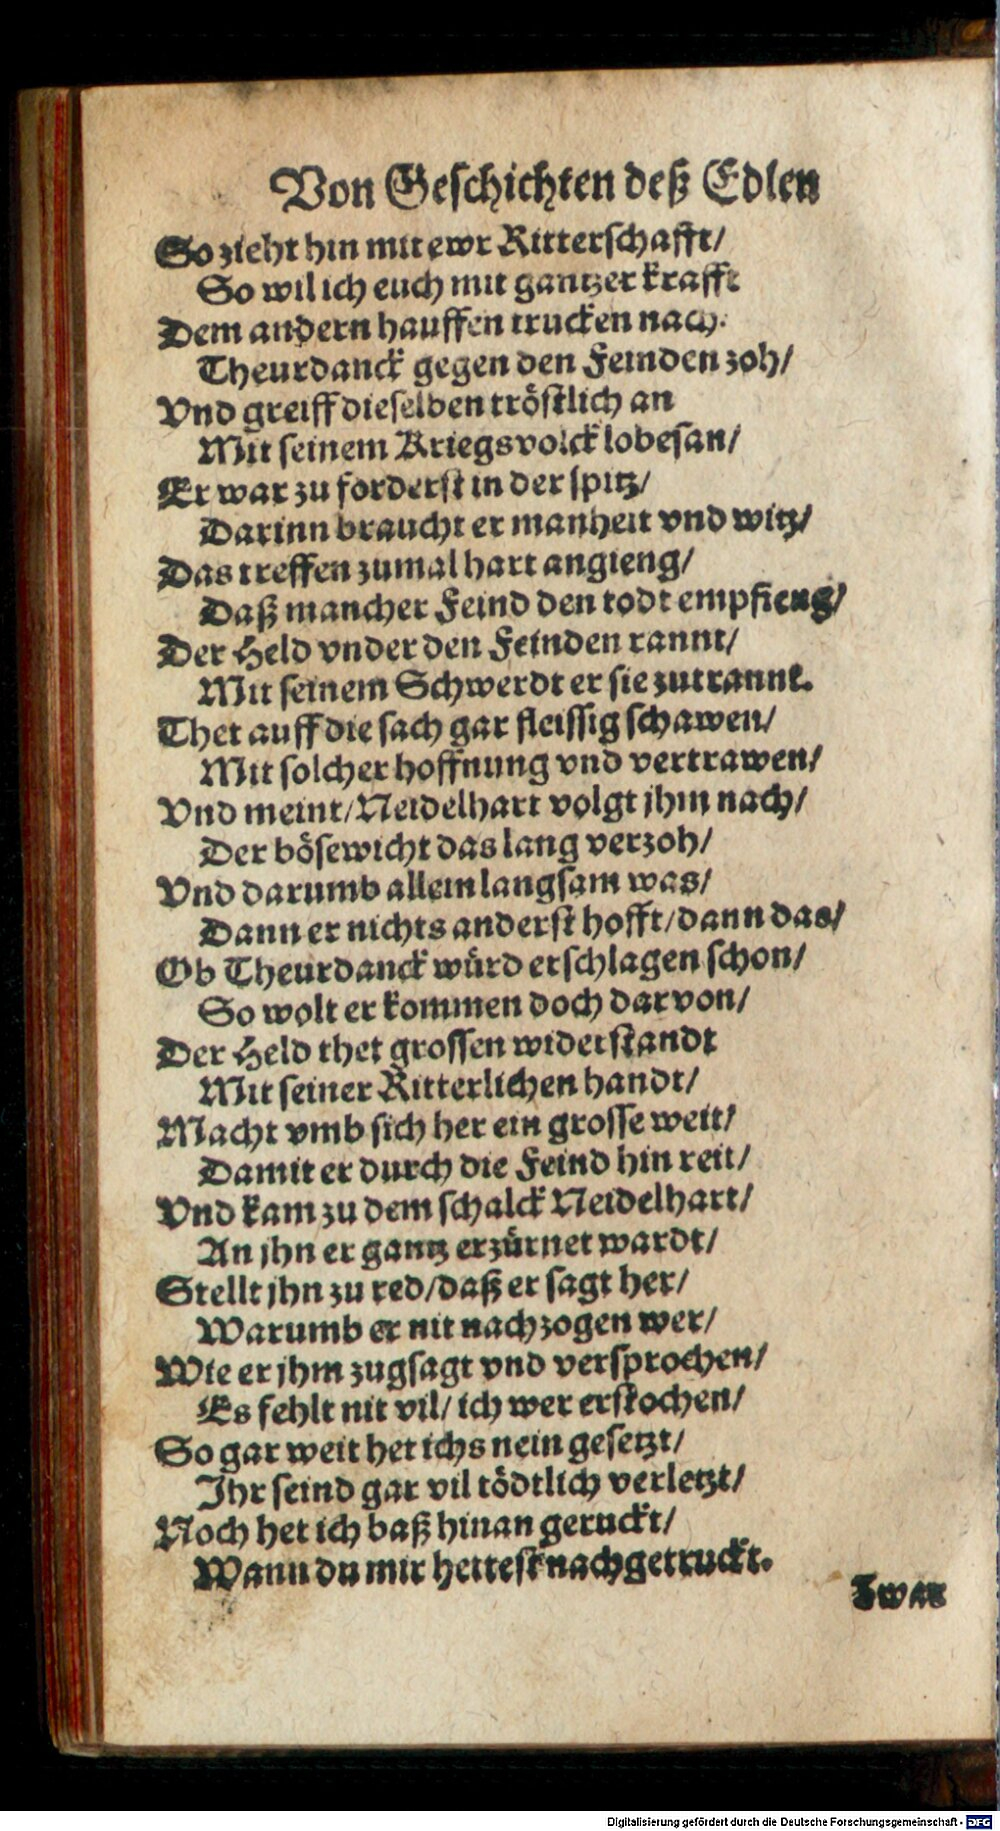 Von Geschichten deß Edlen
So zieht hin mit ewr Ritterschafft/
So wil ich euch mit gantzer krafft
Dem andern hauffen trucken nach.
Theurdanck gegen den Feinden zoh/
Vnd greiff dieselben tröstlich an
Mit seinem Kriegsvolck lobesan/
Er war zu forderst in der spitz/
Darinn braucht er manheit vnd witz/
Das treffen zumal hart angieng/
Daß mancher Feind den todt empfieng/
Der Held vnder den Feinden rannt/
Mit seinem Schwerdt er sie zutrannt.
Thet auff die sach gar fleissig schawen/
Mit solcher hoffnung vnd vertrawen/
Vnd meint/Neidelhart volgt jhm nach/
Der bösewicht das lang verzoh/
Vnd darumb allein langsam was/
Dann er nichts anderst hofft/dann das/
Ob Theurdanck würd erschlagen schon/
So wolt er kommen doch darvon/
Der Held thet grossen widerstandt
Mit seiner Ritterlichen handt/
Macht vmb sich her ein grosse weit/
Damit er durch die Feind hin reit/
Vnd kam zu dem schalck Neidelhart/
An jhn er gantz erzürnet wardt/
Stellt jhn zu red/daß er sagt her/
Warumb er nit nachzogen wer/
Wie er jhm zugsagt vnd versprochen/
Es fehlt nit vil/ich wer erstochen/
So gar weit het ichs nein gesetzt/
Ihr seind gar vil tödtlich verletzt/
Noch het ich baß hinan geruckt/
Wann du mir hettest nachgetruckt.
Zwar
Digitalisierung gefördert durch die Deutsche Forschungsgemeinschaft - DFG